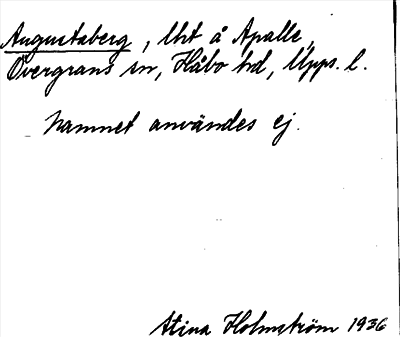 Augustaberg, lht å Apalle,
Övergrans sn, Håbo hd, Upps. l.
Namnet användes ej.
Stina Holmström 1936